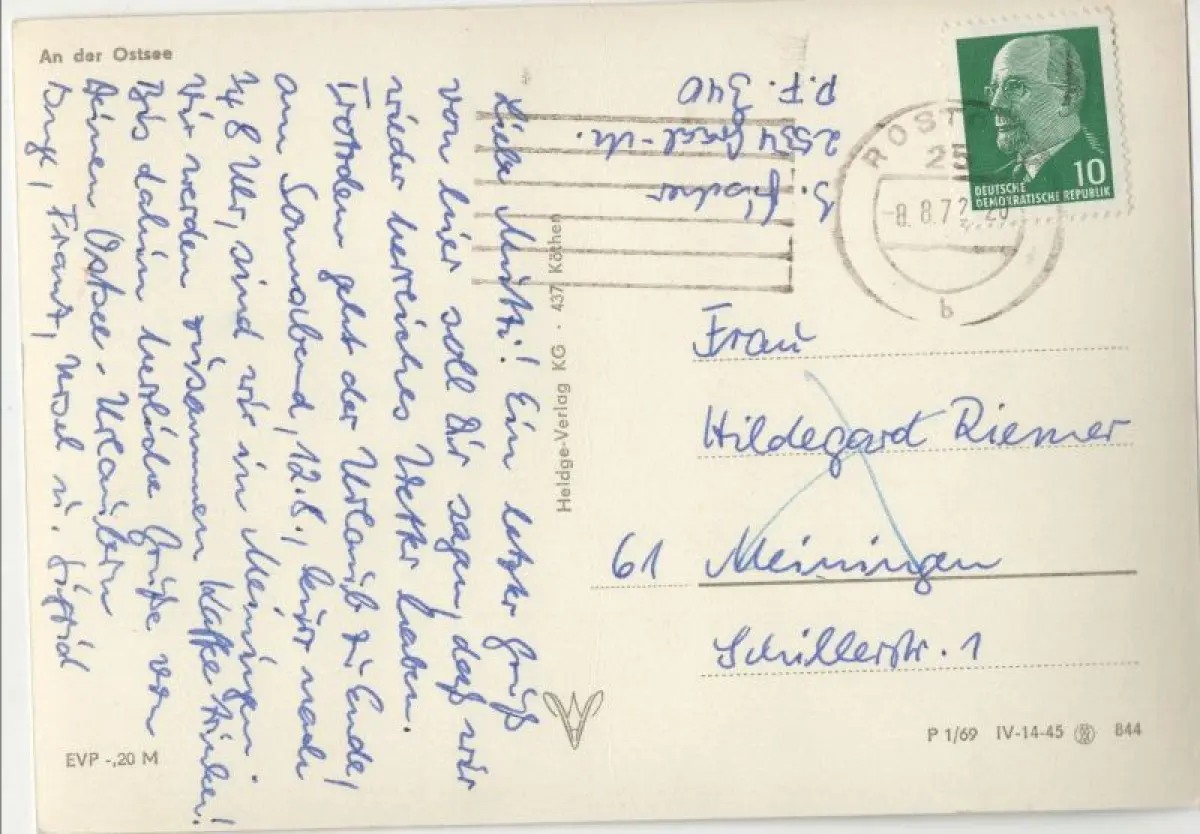 An der Ostsee
Liebe Mutti! Ein letzter Gruß
von hier soll Dir sagen, daß wir
wieder herrliches Wetter haben.
Trotzdem geht der Urlaub zu Ende,
am Sonnabend, 12.8., kurz nach
8 Uhr, sind wir in Meiningen.
Wir werden zusammen Kaffee trinken!
Bis dahin herzliche Grüße von
Deinen Ostsee-Urlaubern
Frank, Ursel u.
EVP -,20 M
Heldge-Verlag KG · 437 Köthen
Fischer
2524 Graal-M.
P.F. 340
ROSTOCK
25
-8.8.72
20
b
10
DEUTSCHE
DEMOKRATISCHE REPUBLIK
Frau
Hildegard Riemer
61 Meiningen
Schillerstr. 1
P 1/69 IV-14-45 844